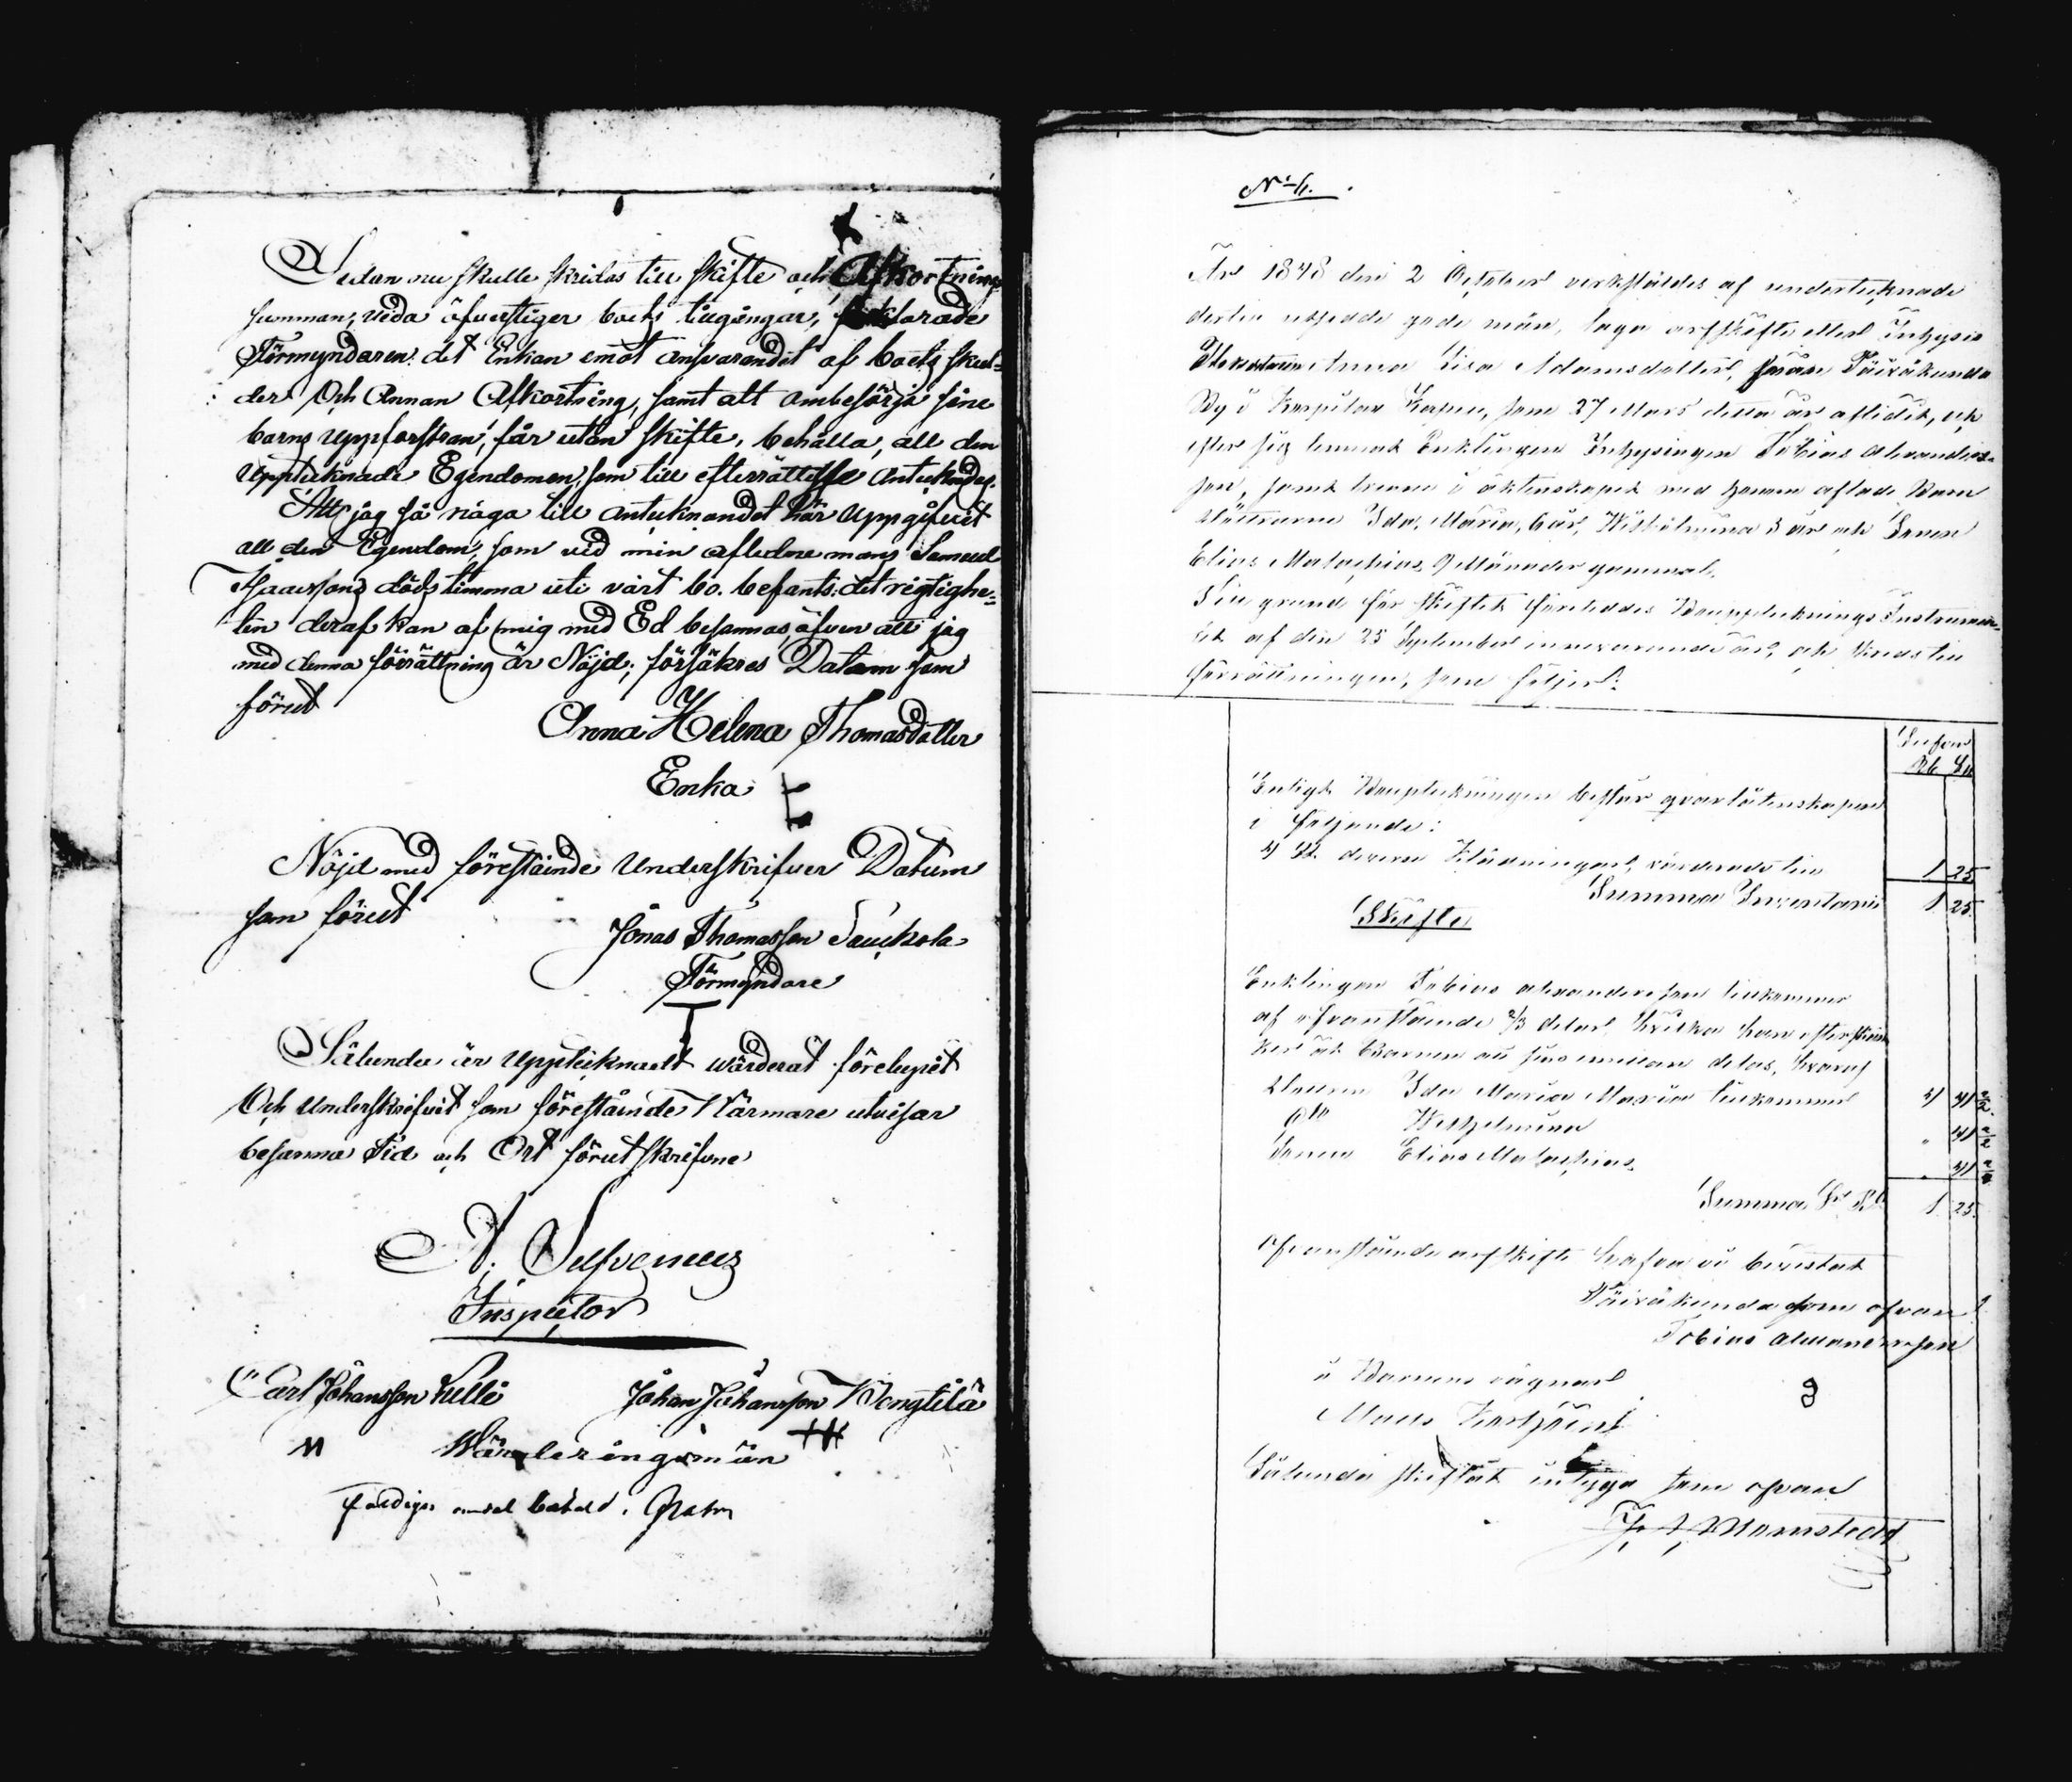 Sedan nu skulle skridas till skifte och Afkortnings
summan, vida öfverstiger boets tillgångar, förklarade
Förmyndaren det Enkan emot ansvarandet af boets skul-
der Och Annan Afkortning, samt att ombesörja sine
barns uppfostran, får utan skifte, behålla, all den
Uppteknade Egendomen, som till efterrättelse Antecknades.
Att jag så noga till antecknandet här Uppgifvit
all den Egendom, som vid min afledne mans Samuel
döds timma uti vårt bo. befants; det rigtighe-
ten deraf kan af mig med Ed besannas, äfven att jag
med denna förrättning är Nöjd; försäkras Datum som
förut
Anna Helena Thomasdotter
Enka
Nöjd med förestående Underskrifver Datum
som förut
Jonas Thomasson Sauckola
Förmyndare
Sålunda är Upptecknadt wärderat förelupit
Och Underskrifvit som förestående Närmare utvisar
besanna Tid och Ort förut skrifne
Inspector
Carl Johansson Lelli Johan Johansson
Wärderingsmän
Fattigas andel betald.
No 6.
År 1848 den 2 October verkställdes af undertecknade
dertill utsedde gode män, laga arfskifte efter Inhyses
Anna Lisa Adamsdotter, från Päiväkunda
By i Kapell, som 27 Mars detta år aflidit, och
efter sig lemnat Enklingen Inhysingen Tobias Alexanders-
son, samt trenne i äktenskapet med honom aflade Barn
Döttrarne Ida Maria, 6 år, Wilhelmina 3 år och Sonen
Elias Malachias 9 Månader gammal.
Till grund för skiftet företeddes Bouppteknings Instrumen-
tet af den 25 September innevarande år, och skreds till
förrättningen, som följer:
Silfver
Rb Kop
Enligt Bouppteckningen består qvarlåtenskapen
i följande:
4 St. diverse Klädningar, värderade till 1 25
Summa Inventarii 1 25.
Skifte
Enklingen Tobias Alexandersson tillkommer
af ofvanstående 2/3 delar hvilka han efterskän-
ker åt Barnen att sins emellan delas, hvaraf
Dottren Ida Maria Maria tillkommer " 41 2/3.
Dito Wilhelmina " 41 2/3
Sonen Elias Malachias. " 41 2/3
Summa Sr Rb 1 25.
Ofvanstående arfskifte hafva vi bevistat
Päiväkunda som ofvan
Tobias Alexandersson
å Barnens vägnar
Matts
Sålunda skiftat intyga som ofvan